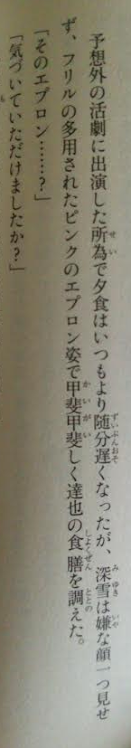 予想外の活劇に出演した所為で夕食はいつもより随分遅くなったが、深雪は嫌な顔一つ見せ
ず、フリルの多用されたピンクのエプロン姿で甲斐甲斐しく達也の食膳を調えた。
「そのエプロン……？」
「気づいていただけましたか？」